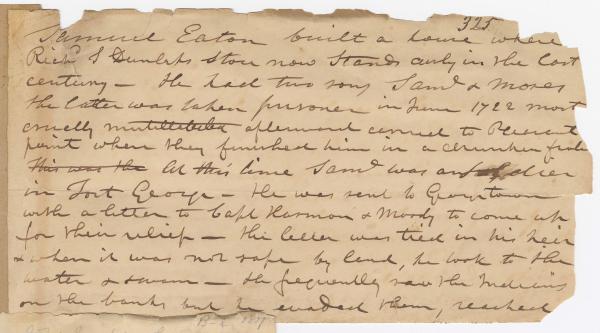 325
Samuel Eaton built a house where
Richd S Dunlaps Stor now Stands early in the last
century — He had two sons Saml & Moses
the latter was taken prisoner in June 1722 most
cruelly afterward carried to Pleasant
point where they finished him in a
This was the At this time Saml was a Soldier
in Fort George — He was sent to Georgetown
with a letter to Capt Harmon & Moody to come up
for their relief — the letter was tied in his heir
& when it was not safe by land, he took to the
water & swam — He frequently saw the Indians
on the banks but he evaded them, reached